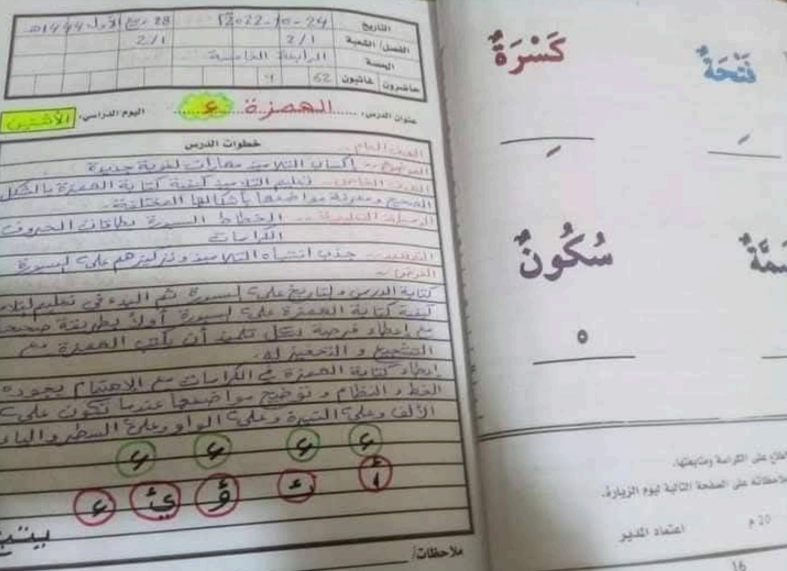 التاريخ 24-10-2022م 28 ربيع الأول 1444هـ
الفصل/الشعبة 2/1 2/1
الحصة الرابعة الخامسة
حاضرون غائبون 62 4
عنوان الدرس: الهمزة ء اليوم الدراسي: الاثنين
خطوات الدرس
الهدف العام
الموضوع :- إكساب التلاميذ مهارات لغوية جديدة
الهدف الخاص :- تعليم التلاميذ كيفية كتابة الهمزة بالشكل
الصحيح ومعرفة مواضعها بأشكالها المختلفة.
الوسيلة التعليمية :- الخطاط السبورة بطاقات الحروف
الكراسات
التمهيد :- جذب انتباه التلاميذ وتركيزهم على السبورة
العرض :-
كتابة الدرس والتاريخ على السبورة ثم البدء في تعليم التلاميذ
كيفية كتابة الهمزة على السبورة أولاً بطريقة صحيحة
مع إعطاء فرصة لكل تلميذ أن يكتب الهمزة مع
التشجيع والتحفيز له.
إعطاء كتابة الهمزة في الكراسات مع الاهتمام بجودة
الخط والنظام وتوضيح مواضعها عندما تكون على
الألف وعلى النبرة وعلى الواو وعلى السطر والياء
ء ء ء ء
أ ئـ ؤ ئ ء
يتبع
ملاحظات/
فَتْحَةٌ كَسْرَةٌ
سُكُونٌ
على الكراسة ومتابعتها.
على الصفحة التالية ليوم الزيارة.
20 م اعتماد المدير
16